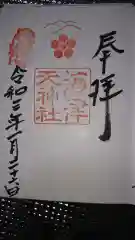 奉拝
海津
天神社
令和三年一月二十日